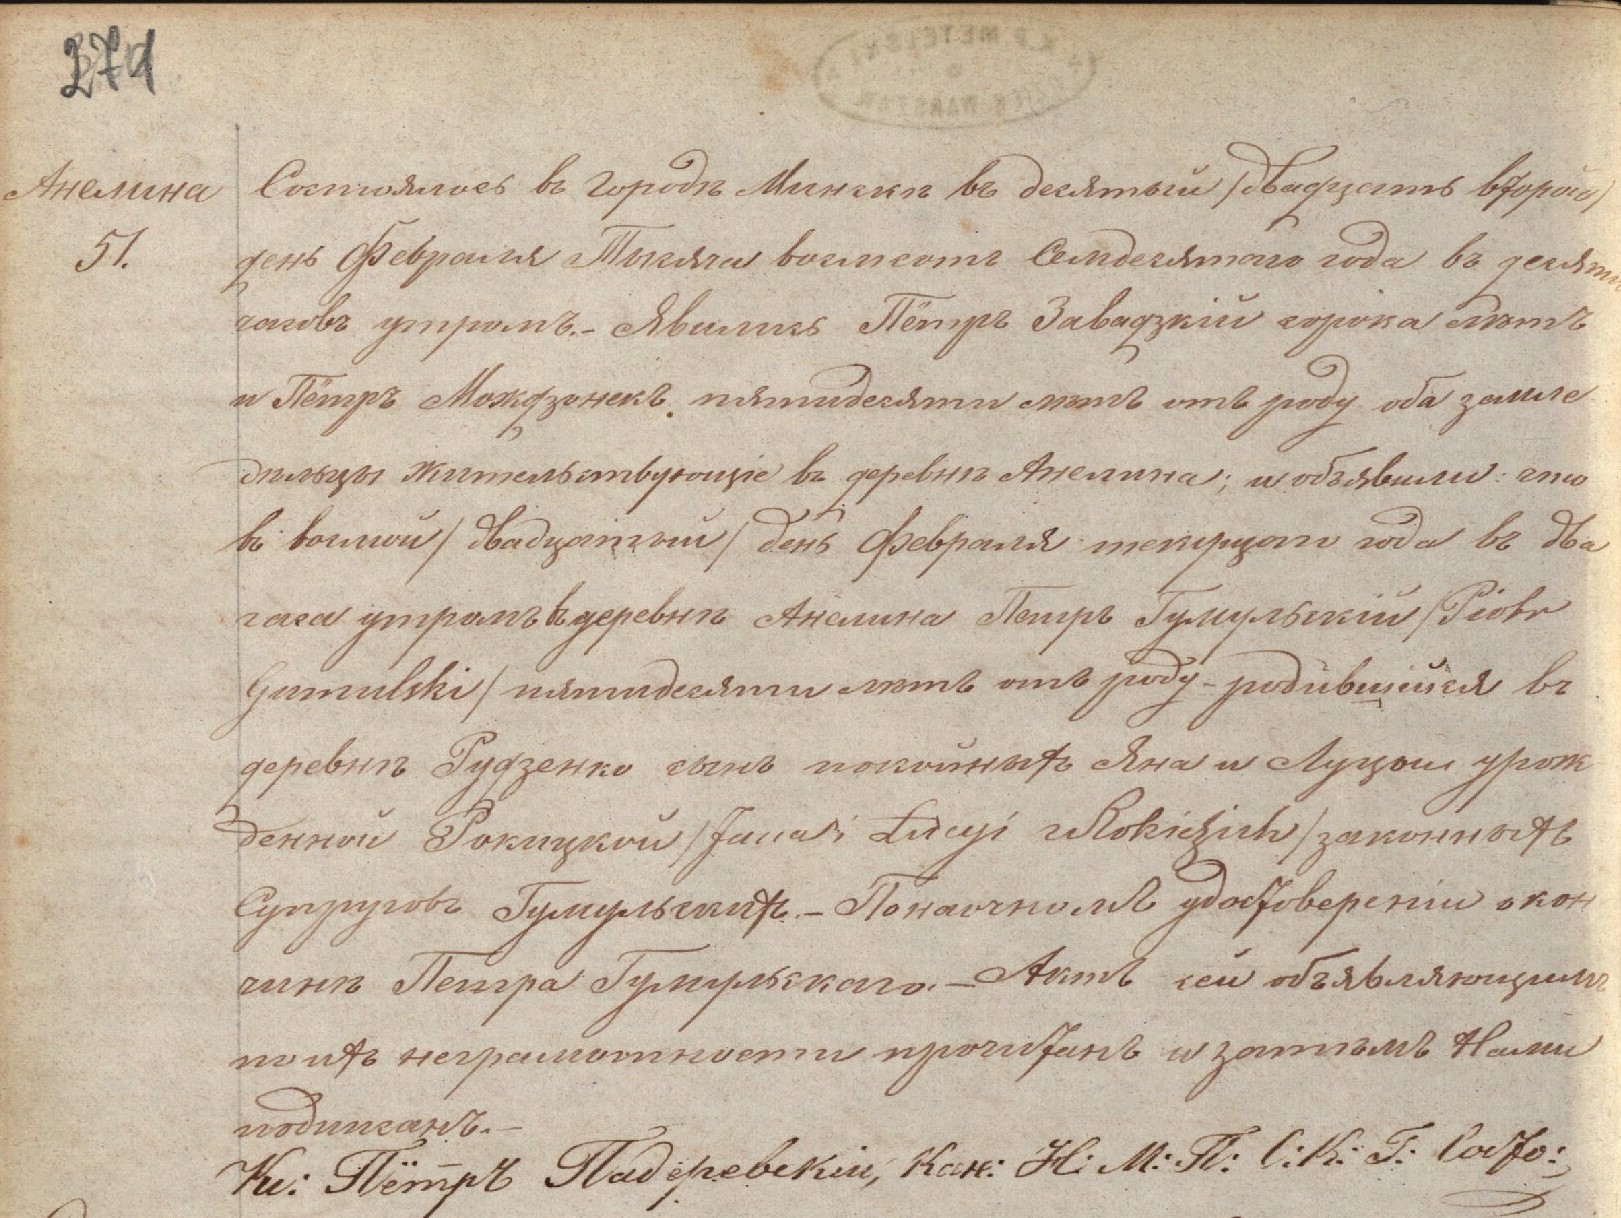 274
Анелина
51.
Состоялось въ городѣ Минскѣ въ десятый /двадцать второй/
день Февраля Тысяча восемсотъ Семдесятаго года въ десять
часовъ утромъ.- Явились Пётръ Завадзкій сорока лѣтъ
и Пётръ Мождзонекъ пятидесяти лѣтъ отъ роду оба земле
дѣльцы жительствующіе въ деревнѣ Анелина; и объявили что
въ восмой /двадцатый/ день Февраля текущаго года въ два
часа утромъ въ деревнѣ Анелина Петръ Гумульскій /Piotr
Gumulski/ пятидесяти лѣтъ отъ роду - родившійся въ
деревнѣ Рудзенко сынъ покойныхъ Яна и Луцыи урож
денной Рокицкой /Jana i Łucyi z Rokickich/ законныхъ
Супруговъ Гумульскихъ.- По наочномъ удостовереніи о кон
чинѣ Петра Гумульскаго.- Актъ сей объявляющимъ
по ихъ неграмотности прочитанъ и затѣмъ Нами
подписанъ.-
Кс: Пётръ Падеревскій, Кан: Н: М: П: С: К: Г: Состо: